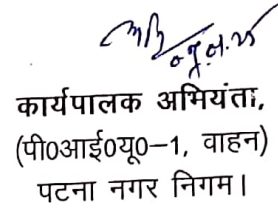 कार्यपालक अभियंता,
(पी0आई0यू0–1, वाहन)
पटना नगर निगम।